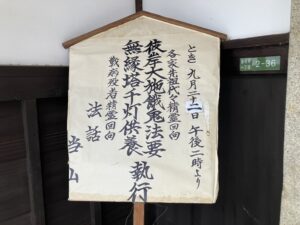 とき 九月二十二日 午後二時より
各家先祖代々精霊回向
彼岸大施餓鬼法要
無縁塔千灯供養 執行
戦病歿者精霊回向
法話
当山
2-36